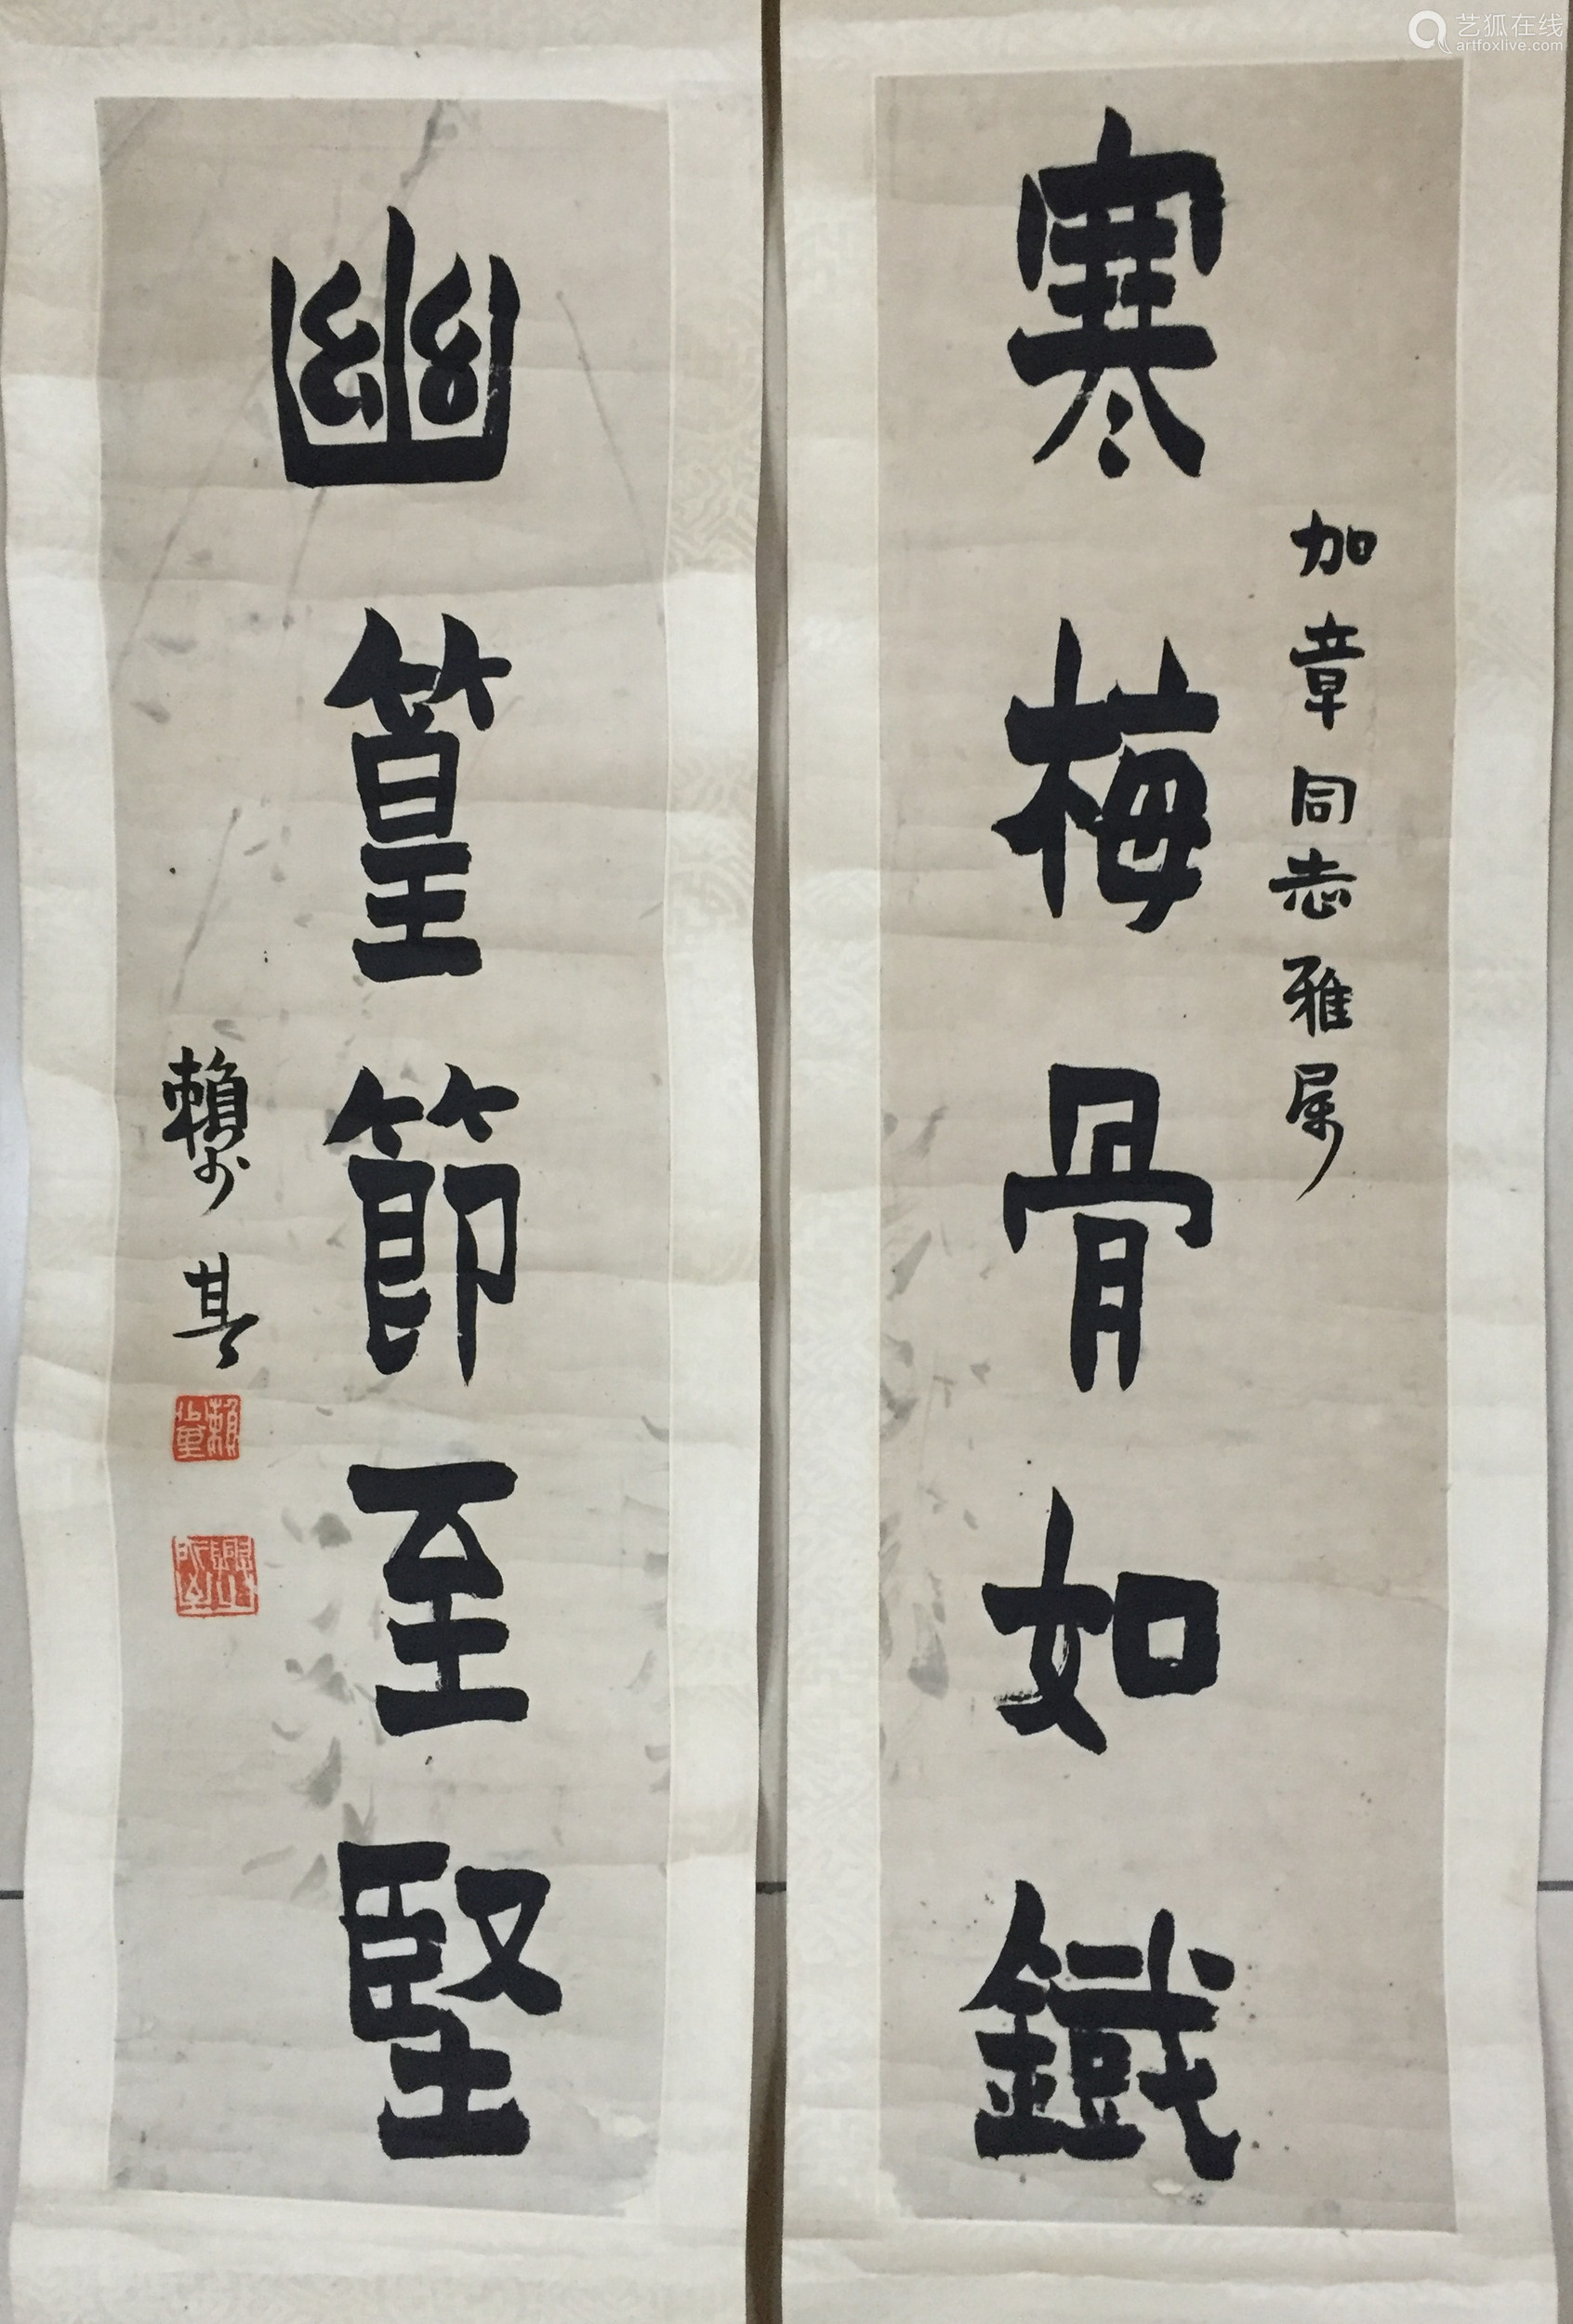 寒梅骨如鐵
加章同志雅属
幽篁節至堅
賴少其
艺狐在线
artfoxlive.com